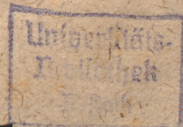 Universitäts-
Bibliothek